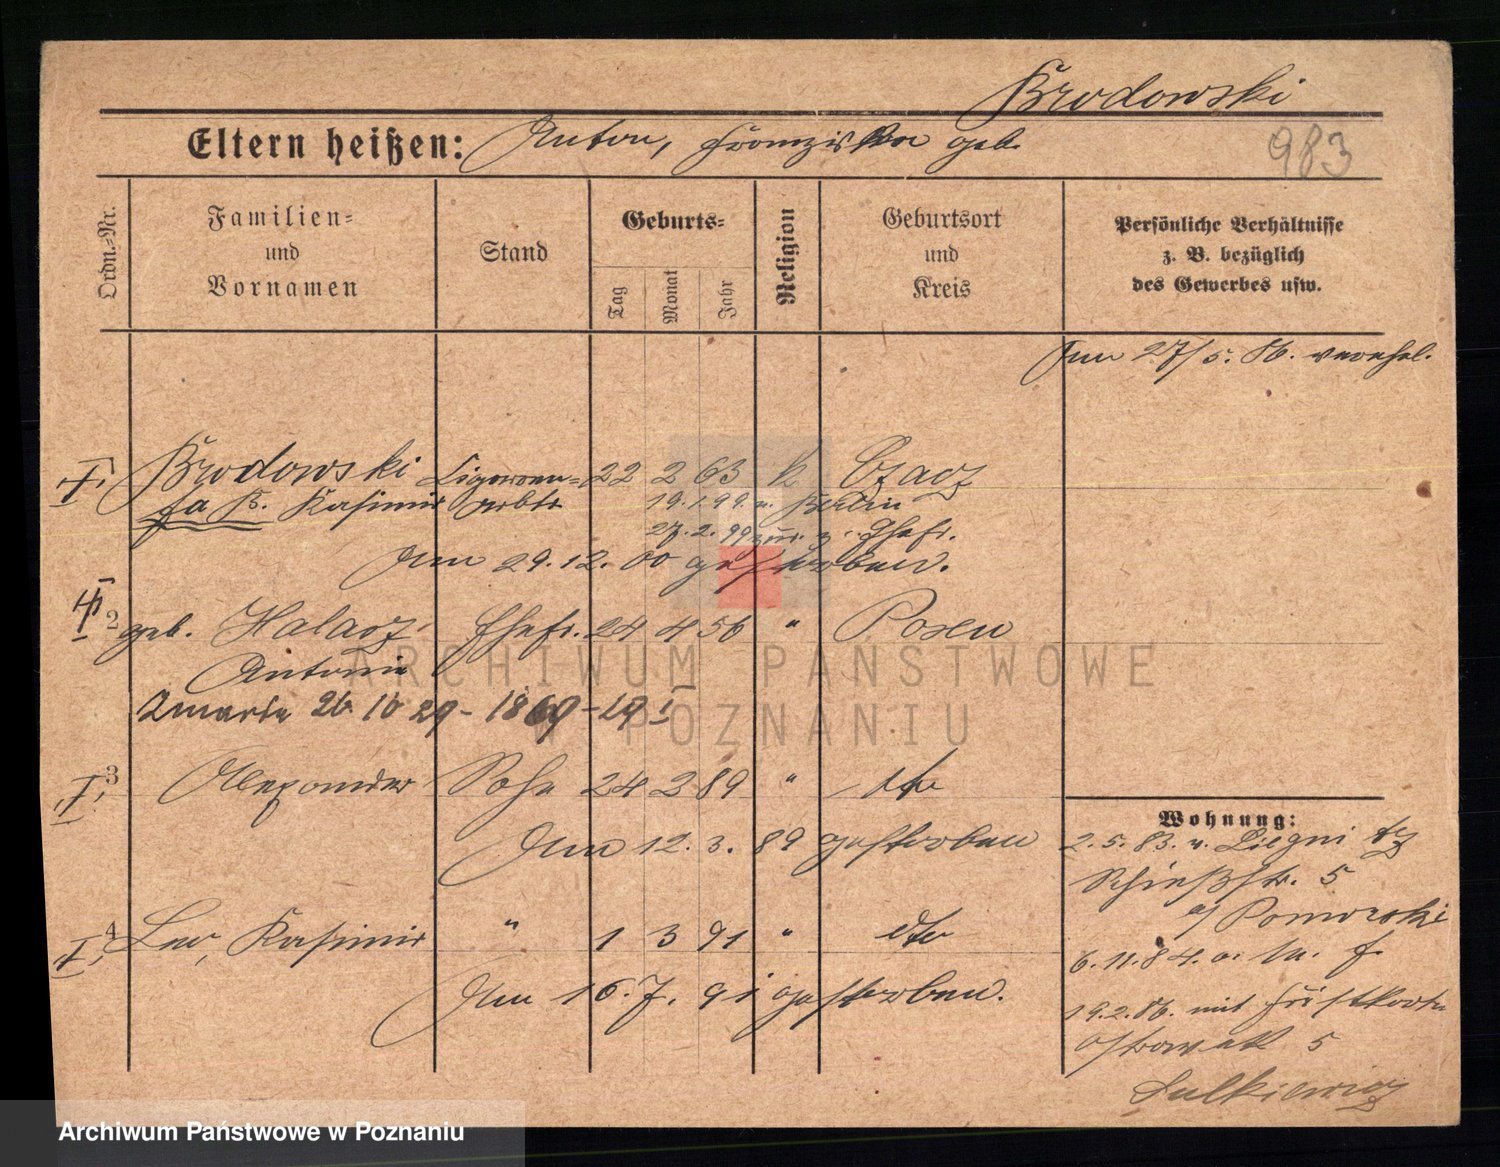 Brodowski
Eltern heißen: Anton, Franziska geb.
983
Ordn.=Nr.
Familien=
und
Vornamen
Stand
Geburts=
Tag
Monat
Jahr
Religion
Geburtsort
und
Kreis
Persönliche Verhältnisse
z. B. bezüglich
des Gewerbes usw.
Am 27/5. 86. verehel.
I. Brodowski Cigarren= 22 2 63 k Czacz
fa B. Kasimir arbtr 19.1.99. n. Berlin
27.2.99 zur. z. Ehefr.
Am 29.12.00 gestorben.
2 geb. Halasz Ehefr. 24 4 56 " Posen
Antonie
Zmarła 26 10 29 - 1869 - 29 I
I. 3 Alexander Sohn 24 2 89 " dto
Am 12. 3. 89 gestorben
I. 4 Leo, Kasimir " 1 3 91 " dto
Am 16. 7. 91 gestorben.
Wohnung:
2.5.83. n. Liegnitz
Schießstr. 5
b/ Pomorski
6.11.84. a.
19.2.86. mit
Ostrowek 5
Sulkiewicz
ARCHIWUM PAŃSTWOWE
W POZNANIU
Archiwum Państwowe w Poznaniu